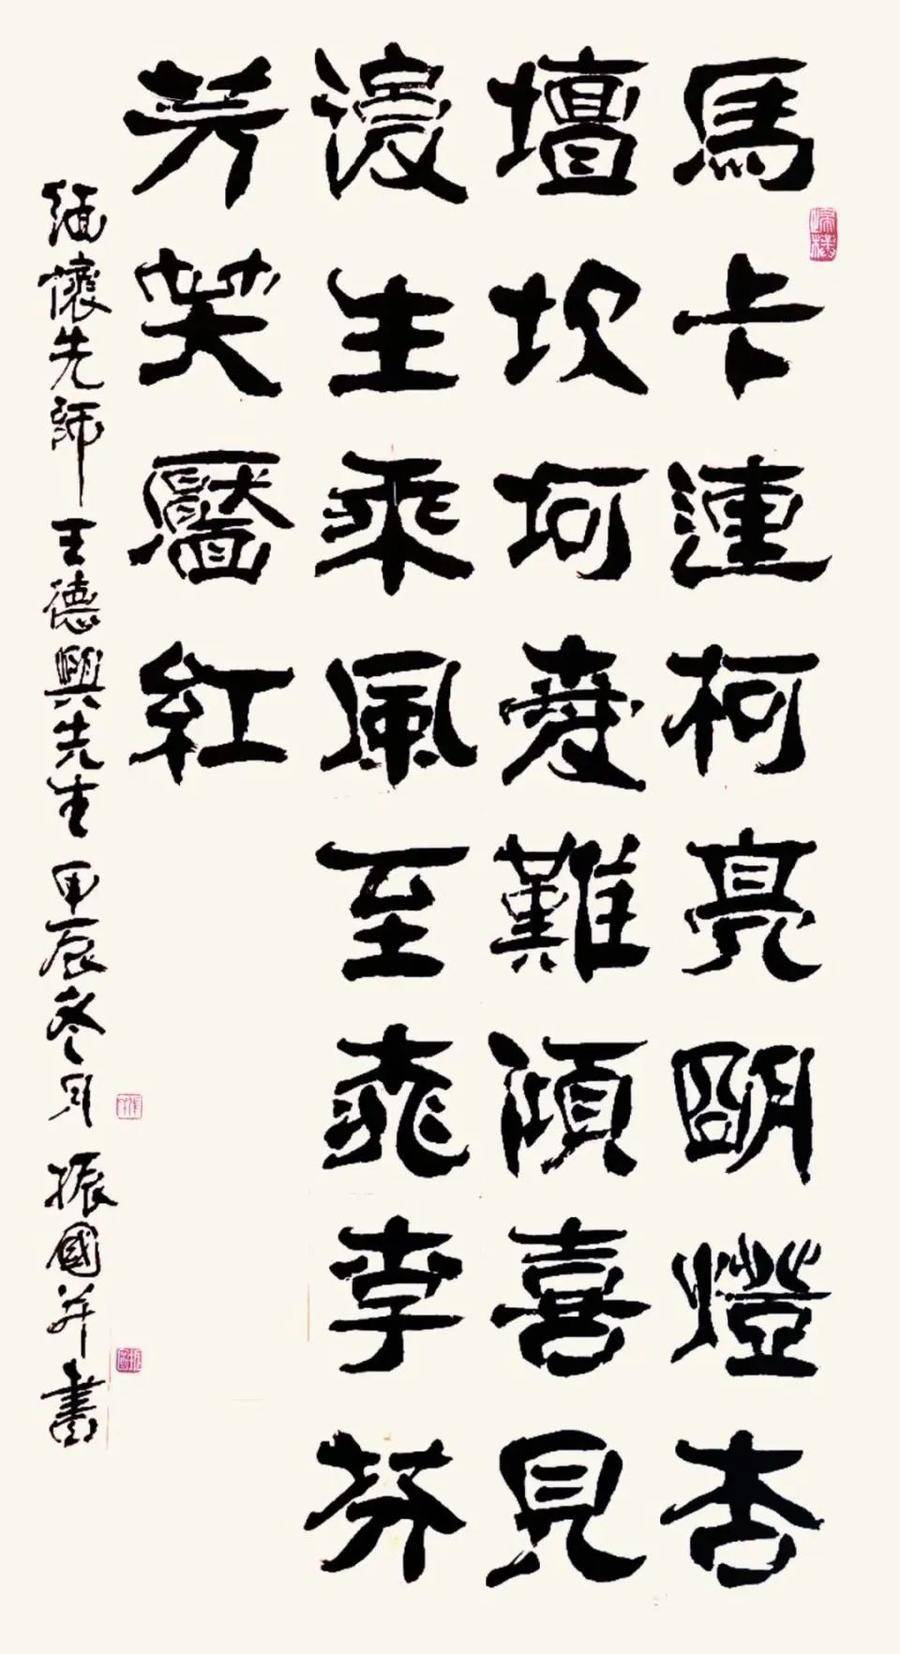 馬卡連柯亮明燈杏
壇坎坷愛難傾喜見
後生乘風至桃李芬
芳笑靨紅
緬懷先師王德興先生甲辰冬月振國并書